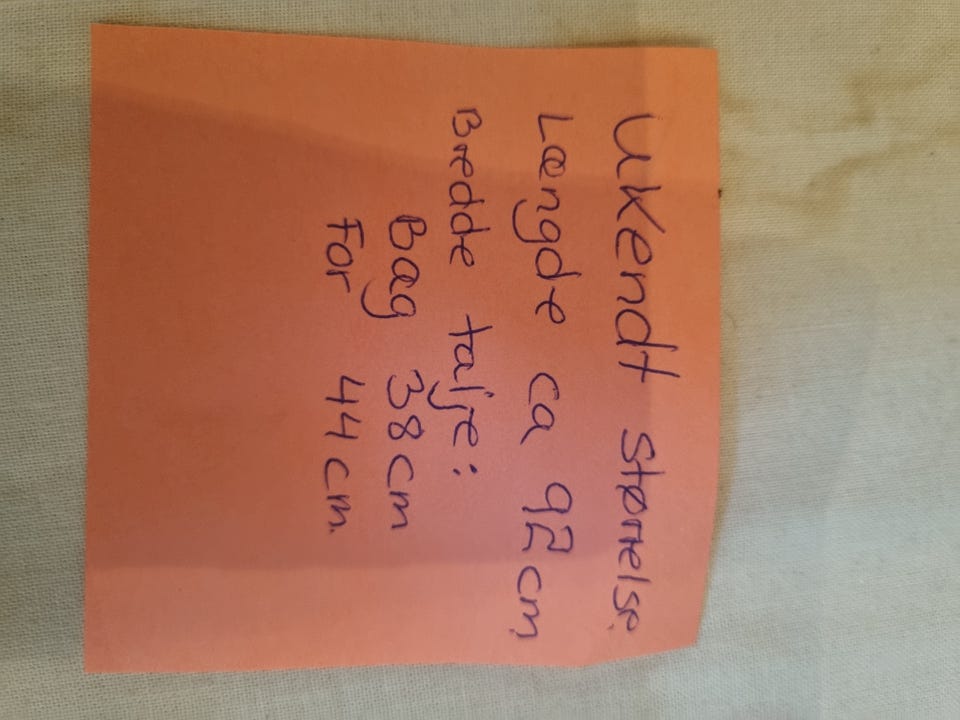 Ukendt størrelse.
Længde ca 92 cm
Bredde talje:
Bag 38 cm
For 44 cm.